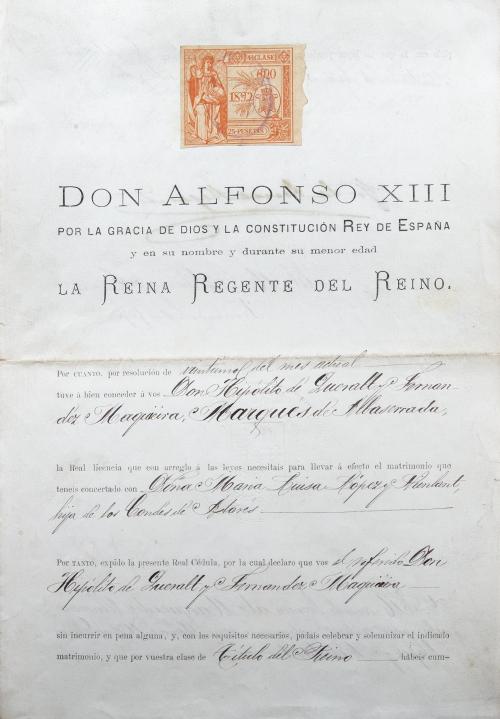 4ª CLASE
1892
25-PESETAS
DON ALFONSO XIII
POR LA GRACIA DE DIOS Y LA CONSTITUCIÓN REY DE ESPAÑA
y en su nombre y durante su menor edad
LA REINA REGENTE DEL REINO.
POR CUANTO, por resolución de veintiuno del mes actual
tuve á bien conceder á vos Don Hipólito de Queralt y Fernan-
dez Maquieira, Marqués de Albaserrada,
la Real licencia que con arreglo á las leyes necesitais para llevar á efecto el matrimonio que
teneis concertado con Doña Maria Luisa López y Nunlant,
hija de los Condes de
POR TANTO, expido la presente Real Cédula, por la cual declaro que vos el referido Don
Hipólito de Queralt y Fernandez Maquieira
sin incurrir en pena alguna, y, con los requisitos necesarios, podais celebrar y solemnizar el indicado
matrimonio, y que por vuestra clase de Título del Reino hábeis cum-